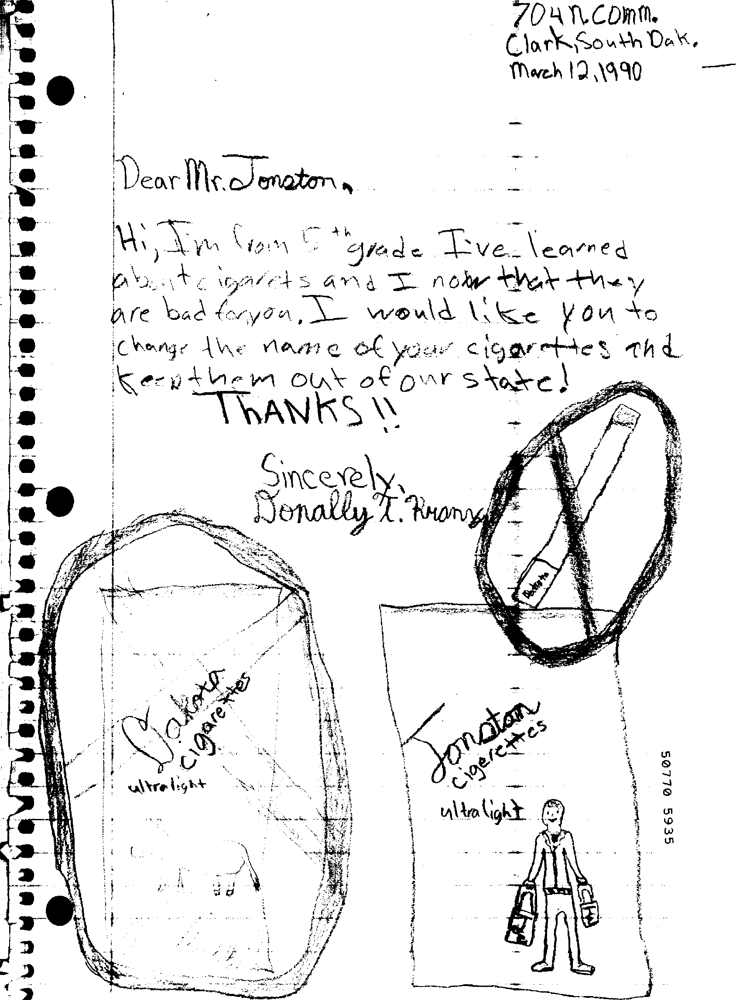 704 N. Comm.
Clark, South Dak.
March 12, 1990
Dear Mr. Jonston,
Hi, I'm from 5th grade I've learned
about cigarets and I now that they
are bad for you. I would like you to
change the name of your cigarettes and
keep them out of our state!
THANKS!!
Sincerely,
Donally T. Kranz
Dakota
Dakota
cigarettes
ultralight
Jonston
cigerettes
ultralight
50770 5935